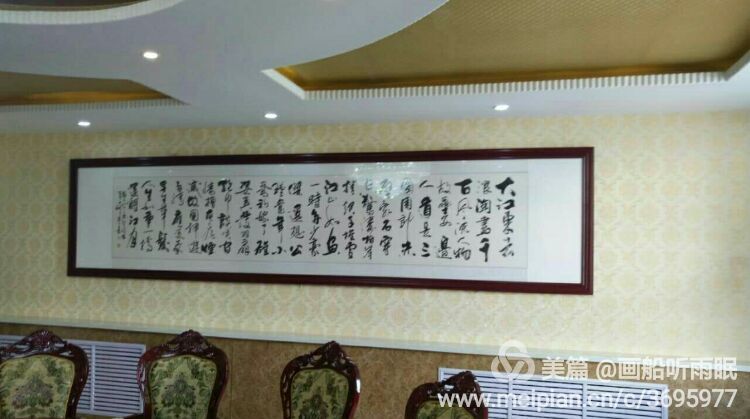 大江東去
浪淘盡千
古風流人物
故壘西邊
人道是三
國周郎赤
壁亂石穿
空驚濤拍岸
捲起千堆雪
江山如畫
一時多少豪
傑遥想公
瑾當年小
喬初嫁了雄
姿英發羽扇
綸巾談笑間
檣櫓灰飛煙
滅故國神遊
多情應笑我
早生華髮
人生如夢一樽
還酹江月
美篇 @画船听雨眠
www.meipian.cn/c/3695977